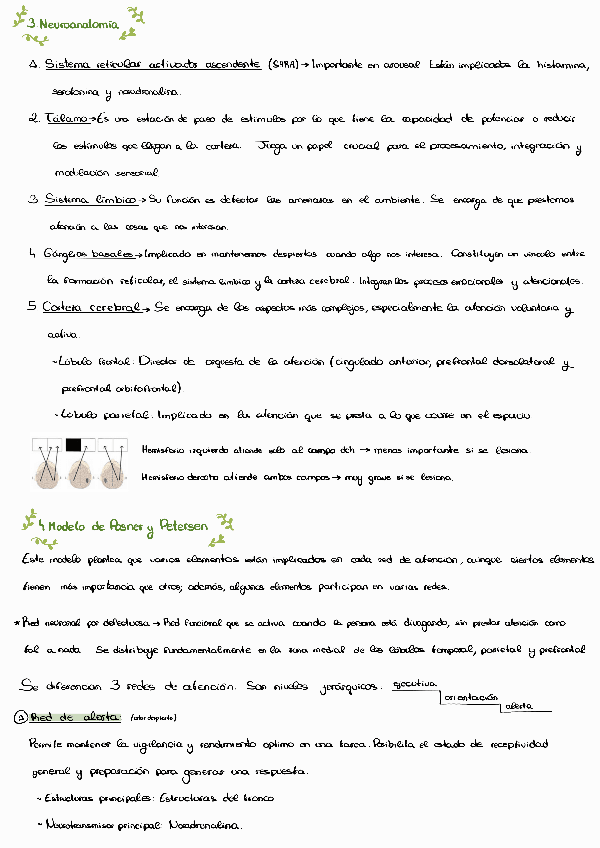 3. Neuroanatomía
1. Sistema reticular activador ascendente (SARA) → Importante en arousal. Están implicadas la histamina,
serotonina y noradrenalina.
2. Tálamo → Es una estación de paso de estímulos por lo que tiene la capacidad de potenciar o reducir
los estímulos que llegan a la corteza. Juega un papel crucial para el procesamiento, integración y
modulación sensorial
3. Sistema límbico → Su función es detectar las amenazas en el ambiente. Se encarga de que prestemos
atención a las cosas que nos interesan.
4. Gánglios basales → Implicado en mantenernos despiertos cuando algo nos interesa. Constituyen un vínculo entre
la formación reticular, el sistema límbico y la corteza cerebral. Integran los procesos emocionales y atencionales.
5. Corteza cerebral → Se encarga de los aspectos más complejos, especialmente la atención voluntaria y
activa.
- Lóbulo frontal: Director de orquesta de la atención (cingulado anterior, prefrontal dorsolateral y
prefrontal orbitofrontal).
- Lóbulo parietal: Implicado en la atención que se presta a lo que ocurre en el espacio
Hemisferio izquierdo atiende solo al campo dch → menos importante si se lesiona
Hemisferio derecho atiende ambos campos → muy grave si se lesiona.
4. Modelo de Posner y Petersen
Este modelo plantea que varios elementos están implicados en cada red de atención, aunque ciertos elementos
tienen más importancia que otros; además, algunos elementos participan en varias redes.
* Red neuronal por defectuosa → Red funcional que se activa cuando la persona está divagando, sin prestar atención como
tal a nada. Se distribuye fundamentalmente en la zona medial de los lóbulos temporal, parietal y prefrontal
Se diferencian 3 redes de atención. Son niveles jerárquicos. ejecutiva
orientación
alerta
1 Red de alerta: (estar despierto)
Permite mantener la vigilancia y rendimiento óptimo en una tarea. Posibilita el estado de receptividad
general y preparación para generar una respuesta.
- Estructuras principales: Estructuras del tronco
- Neurotransmisor principal: Noradrenalina.